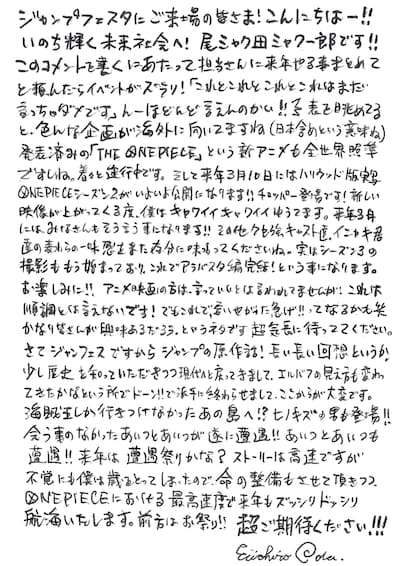 ジャンプフェスタにご来場の皆さま!こんにちはー!!
いのち輝く未来社会へ! 尾ミャク田ミャク一郎です!!
このコメントを書くにあたって担当さんに来年やる事まとめて
と頼んだらイベントがズラリ!「これとこれとこれとこれはまだ
言っちゃダメです」んーほとんど言えんのかい!!予表を眺めてる
と、色んな企画が海外に向いてますね(日本含めという意味ね)
発表済みの「THE ONE PIECE」という新アニメも全世界照準
ですしね。着々と進行中です。そして来年3月10日にはハリウッド版実写
ONE PIECEシーズン2がいよいよ公開になります!!チョッパー登場です!新しい
映像が上がってくる度、僕はキャワイイキャワイイゆうてます。来年3月
には、みなさんもそう言う事になります!!その他クセ強キャスト達、イニャキ君
達の変わらの一味感もまた存分に味わってくださいね。実はシーズン3の
撮影ももう始まっており、これでアラバスタ編完結!という事になります。
お楽しみに!! アニメ映画の方は、言っていいとは言われてませんが、これは
順調とは言えないです!でもこれで言いせかした負け!!ってなるかも笑
かなり皆さんが興味あるだろう、というネタです超気長に待っててください。
さてジャンフェスですからジャンプの原作話!長い長い回想というか、
少し歴史を知っていただきつつ現代へと戻ってきまして、エルバフの見え方も変わっ
てきたかなという所でドーン!!で派手に終わらせまして、ここからが大変です。
海賊王しか行きつけなかったあの島へ!?ヒノキズの男も登場!!
会う事のなかったあいつとあいつが遂に遭遇!!あいつとあいつも
遭遇!!来年は遭遇祭りかな?ストーリーは高速ですが
不覚にも僕は歳をとってしまったので、命の整備もさせて頂きつつ、
ONE PIECEにおける最高速度で来年もズッシリドッシリ
航海いたします。前方はお祭り!!超ご期待ください!!!
Eiichiro Oda.